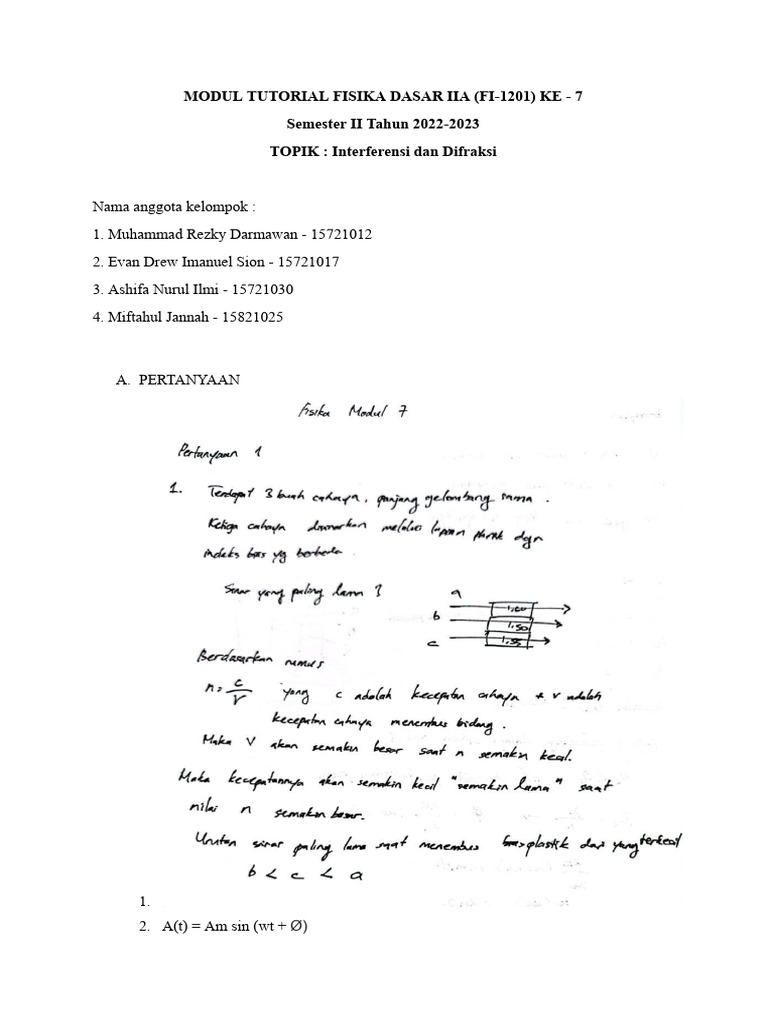 MODUL TUTORIAL FISIKA DASAR IIA (FI-1201) KE - 7
Semester II Tahun 2022-2023
TOPIK : Interferensi dan Difraksi
Nama anggota kelompok :
1. Muhammad Rezky Darmawan - 15721012
2. Evan Drew Imanuel Sion - 15721017
3. Ashifa Nurul Ilmi - 15721030
4. Miftahul Jannah - 15821025
A. PERTANYAAN
Fisika Modul 7
Pertanyaan 1
1. Terdapat 3 buah cahaya, panjang gelombang sama.
Ketiga cahaya melalui lapisan plastik dgn
indeks bias yg berbeda
Sinar yang paling lama 3
a
1,60
b
1,50
c
1,55
Berdasarkan rumus
n = c/v yang c adalah kecepatan cahaya + v adalah
kecepatan cahaya menembus bidang.
Maka V akan semakin besar saat n semakin kecil.
Maka kecepatannya akan semakin kecil "semakin lama" saat
nilai n semakin besar.
Urutan sinar paling lama saat menembus plastik dari yang terkecil
b < c < a
1.
2. A(t) = Am sin (wt + Ø)